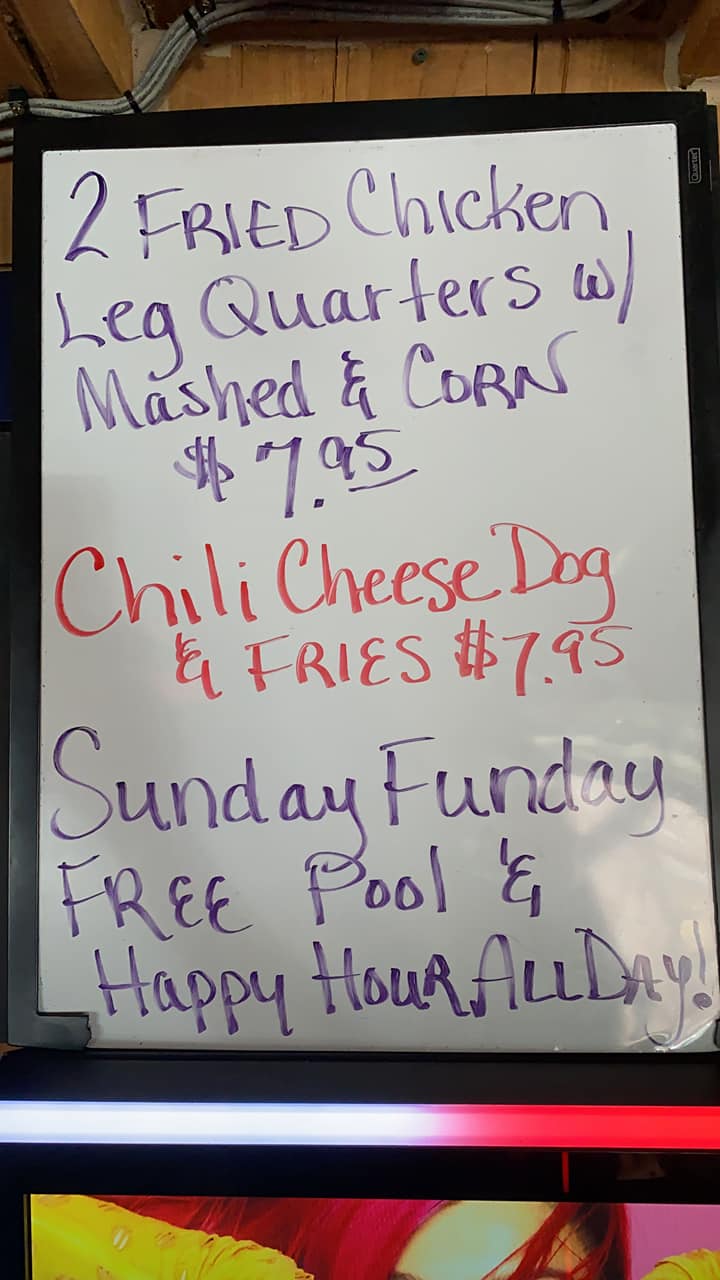 2 FRIED Chicken
Leg Quarters w/
Mashed & CORN
$7.95
Chili Cheese Dog
& FRIES $7.95
Sunday Funday
FREE Pool &
Happy HOUR ALL DAY!
Quartet